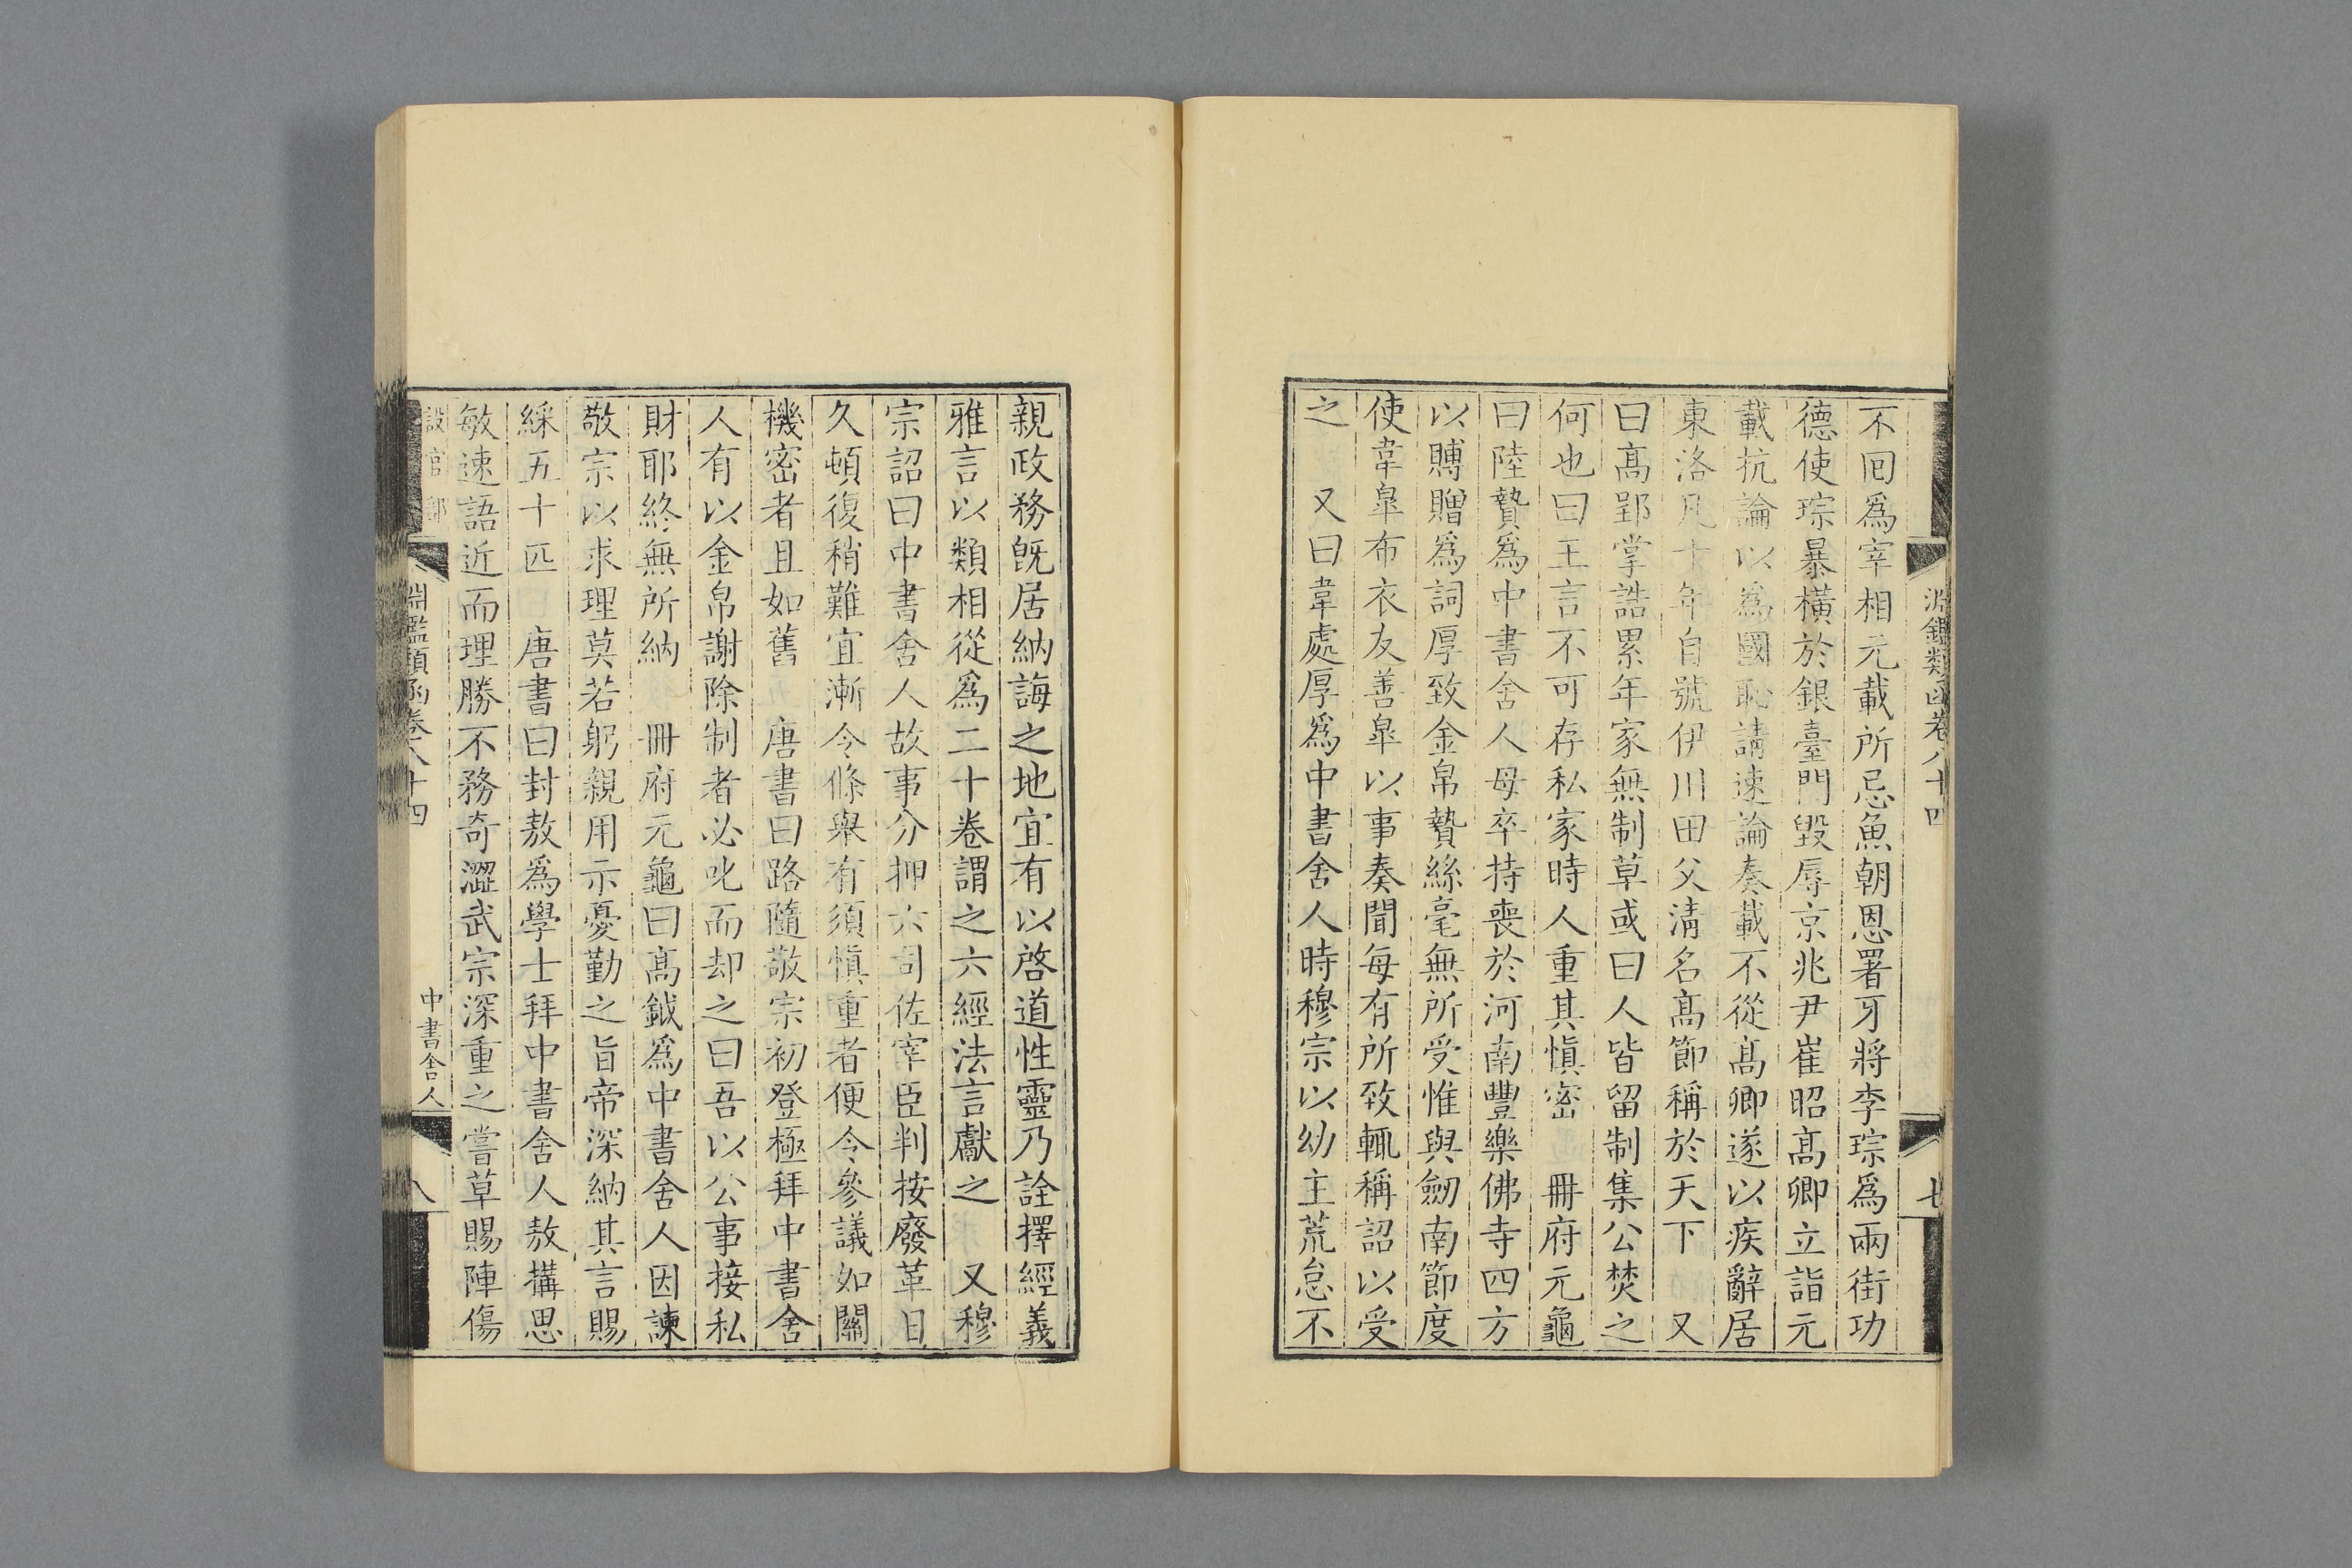 淵鑑類函卷八十四
七
不囘爲宰相元載所忌魚朝恩署牙將李琮爲兩街功
德使琮暴橫於銀臺門毀辱京兆尹崔昭髙卿立詣元
載抗論以爲國恥請速論奏載不從髙卿遂以疾辭居
東洛凡十年自號伊川田父淸名髙節稱於天下　又
曰髙郢掌誥累年家無制草或曰人皆留制集公焚之
何也曰王言不可存私家時人重其愼密　冊府元龜
曰陸贄爲中書舍人母卒持喪於河南豐樂佛寺四方
以賻贈爲詞厚致金帛贄絲毫無所受惟與劒南節度
使韋臯布衣友善臯以事奏聞每有所致輒稱詔以受
之　又曰韋處厚爲中書舍人時穆宗以幼主荒怠不
親政務旣居納誨之地宜有以啓道性靈乃詮擇經義
雅言以類相從爲二十卷謂之六經法言獻之　又穆
宗詔曰中書舍人故事分押六司佐宰臣判按廢革日
久頓復稍難宜漸令條舉有須愼重者便令參議如關
機密者且如舊　唐書曰路隨敬宗初登極拜中書舍
人有以金帛謝除制者必叱而却之曰吾以公事接私
財耶終無所納　冊府元龜曰髙釴爲中書舍人因諫
敬宗以求理莫若躬親用示憂勤之旨帝深納其言賜
綵五十匹　唐書曰封敖爲學士拜中書舍人敖搆思
敏速語近而理勝不務奇澀武宗深重之嘗草賜陣傷
設官部
淵鑑類函卷八十四
中書舍人
八